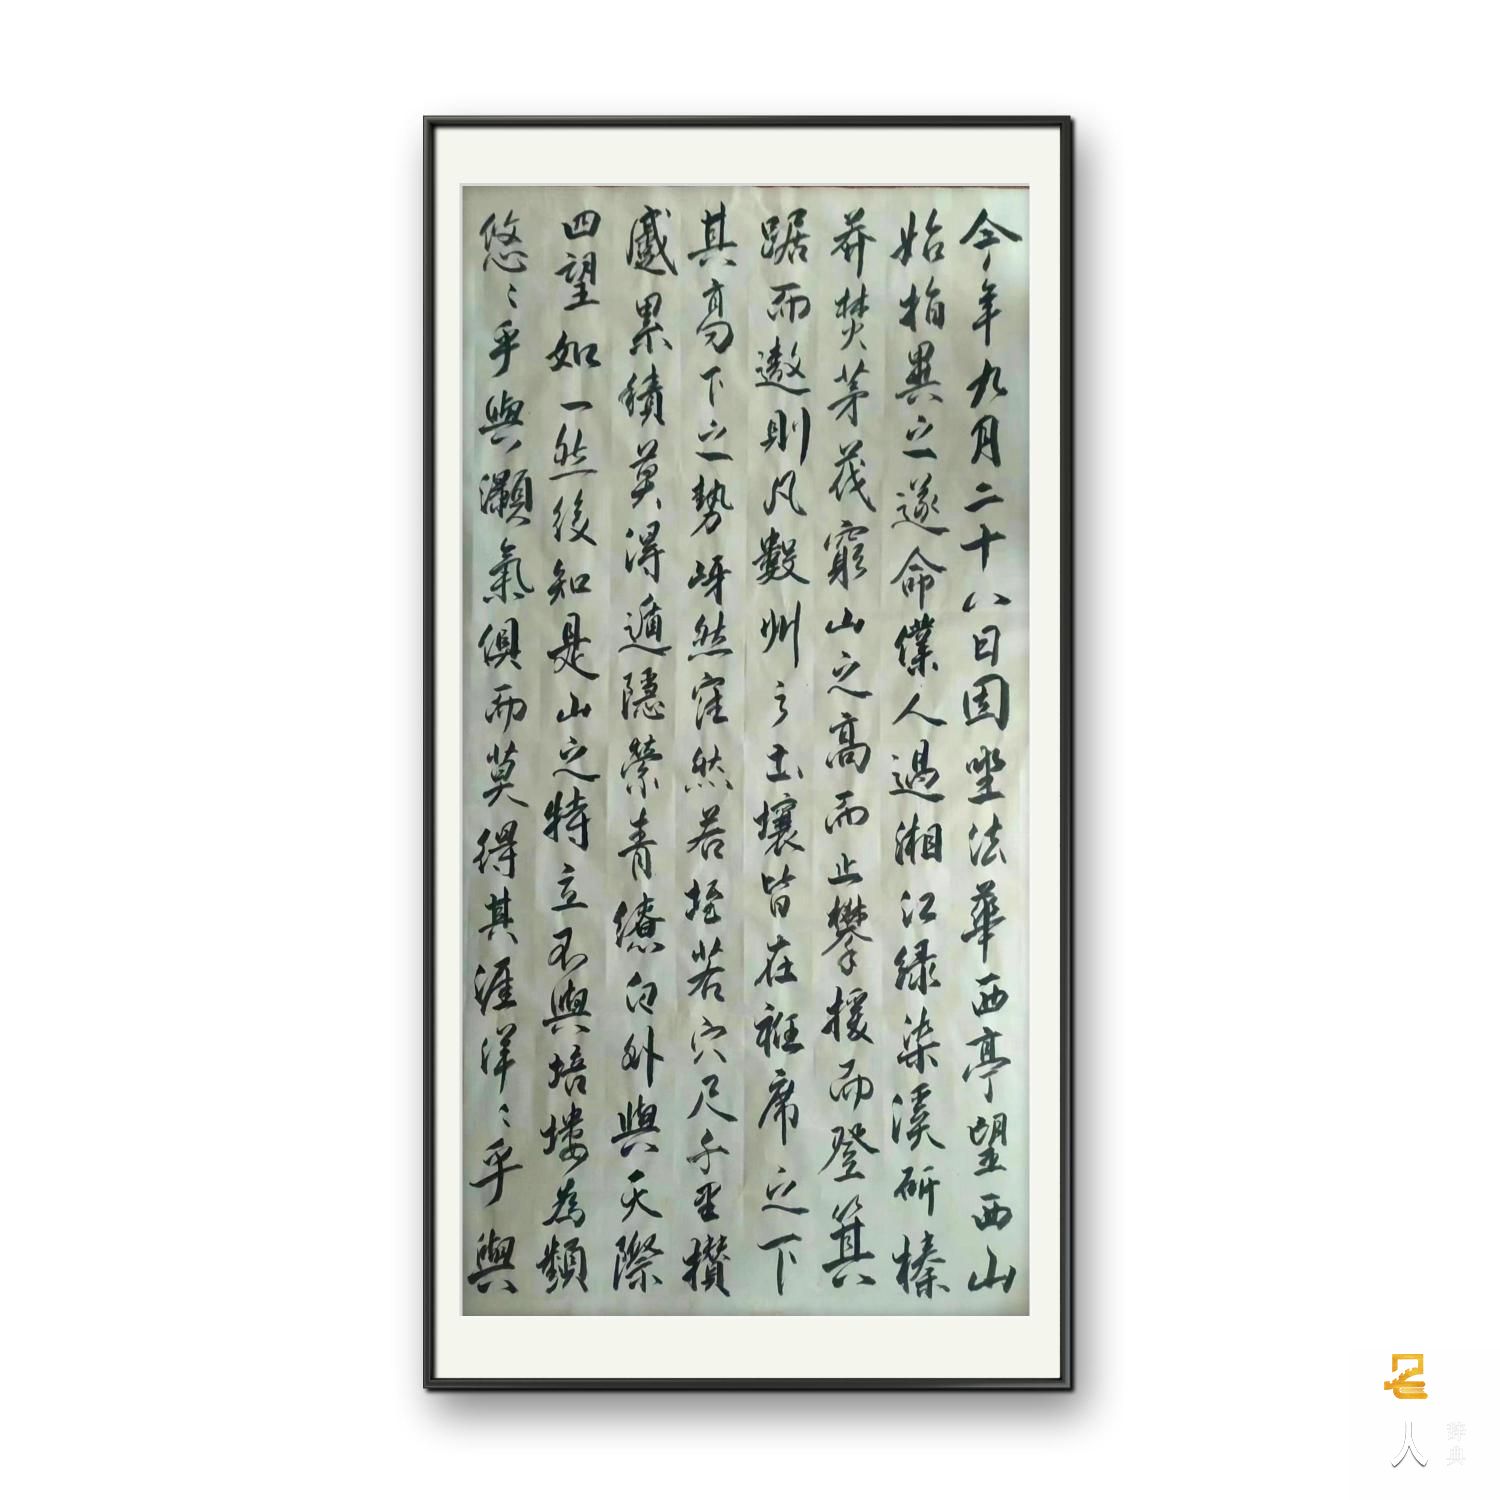 今年九月二十八日因坐法華西亭望西山
始指異之遂命僕人過湘江緣染溪斫榛
莽焚茅茷窮山之高而止攀援而登箕
踞而遨則凡數州之土壤皆在衽席之下
其高下之勢岈然窪然若垤若穴尺千里攢
蹙累積莫得遁隱縈青繚白外與天際
四望如一然後知是山之特立不與培塿為類
悠〻乎與灝氣俱而莫得其涯洋〻乎與
名人辞典